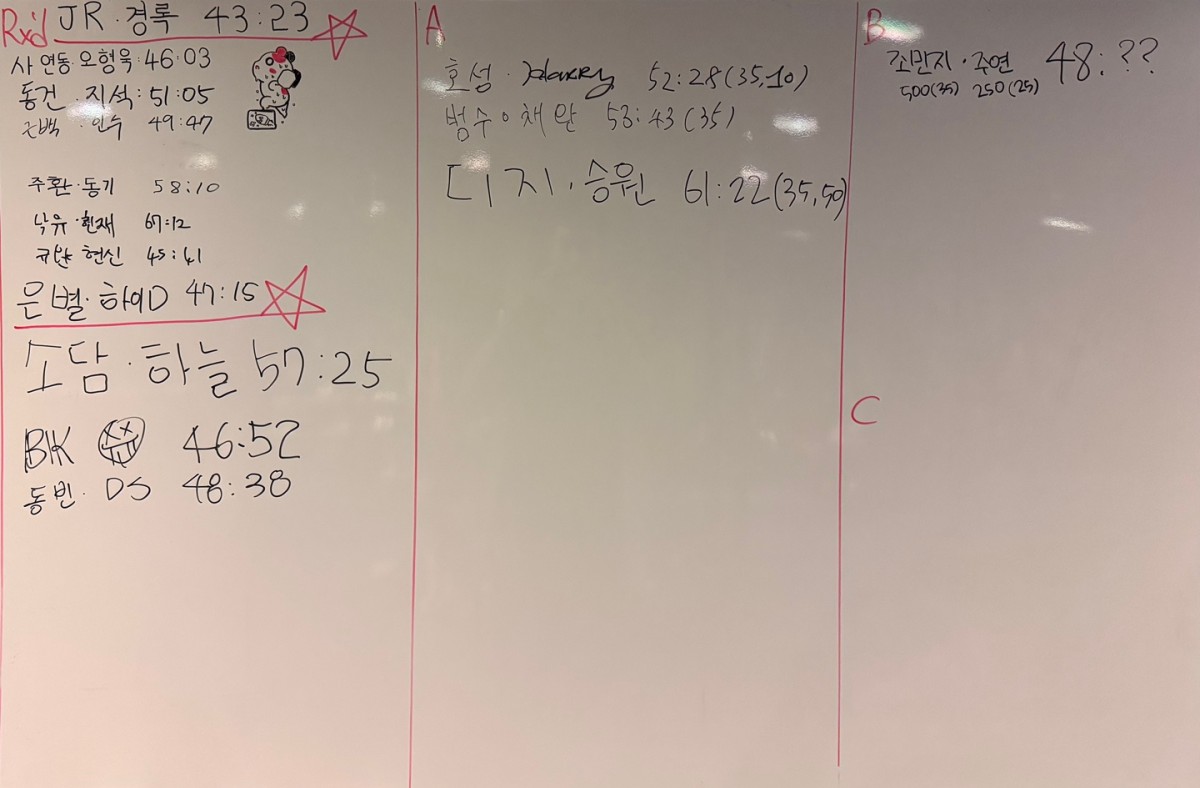 Rx'd JR·경록 43:23
사 연동·오형욱·46:03
동건·지석:51:05
인수 49:47
주환·동기 58:10
낙유·현재 67:12
현신 45:41
은별·하이D 47:15
소담·하늘 57:25
BK 46:52
동빈·DS 48:38
A
호성·Harry 52:28(35,10)
범수 53:43(35)
디지·승원 61:22(35,50)
B
조만지·주연 48:??
500(35) 250(25)
C